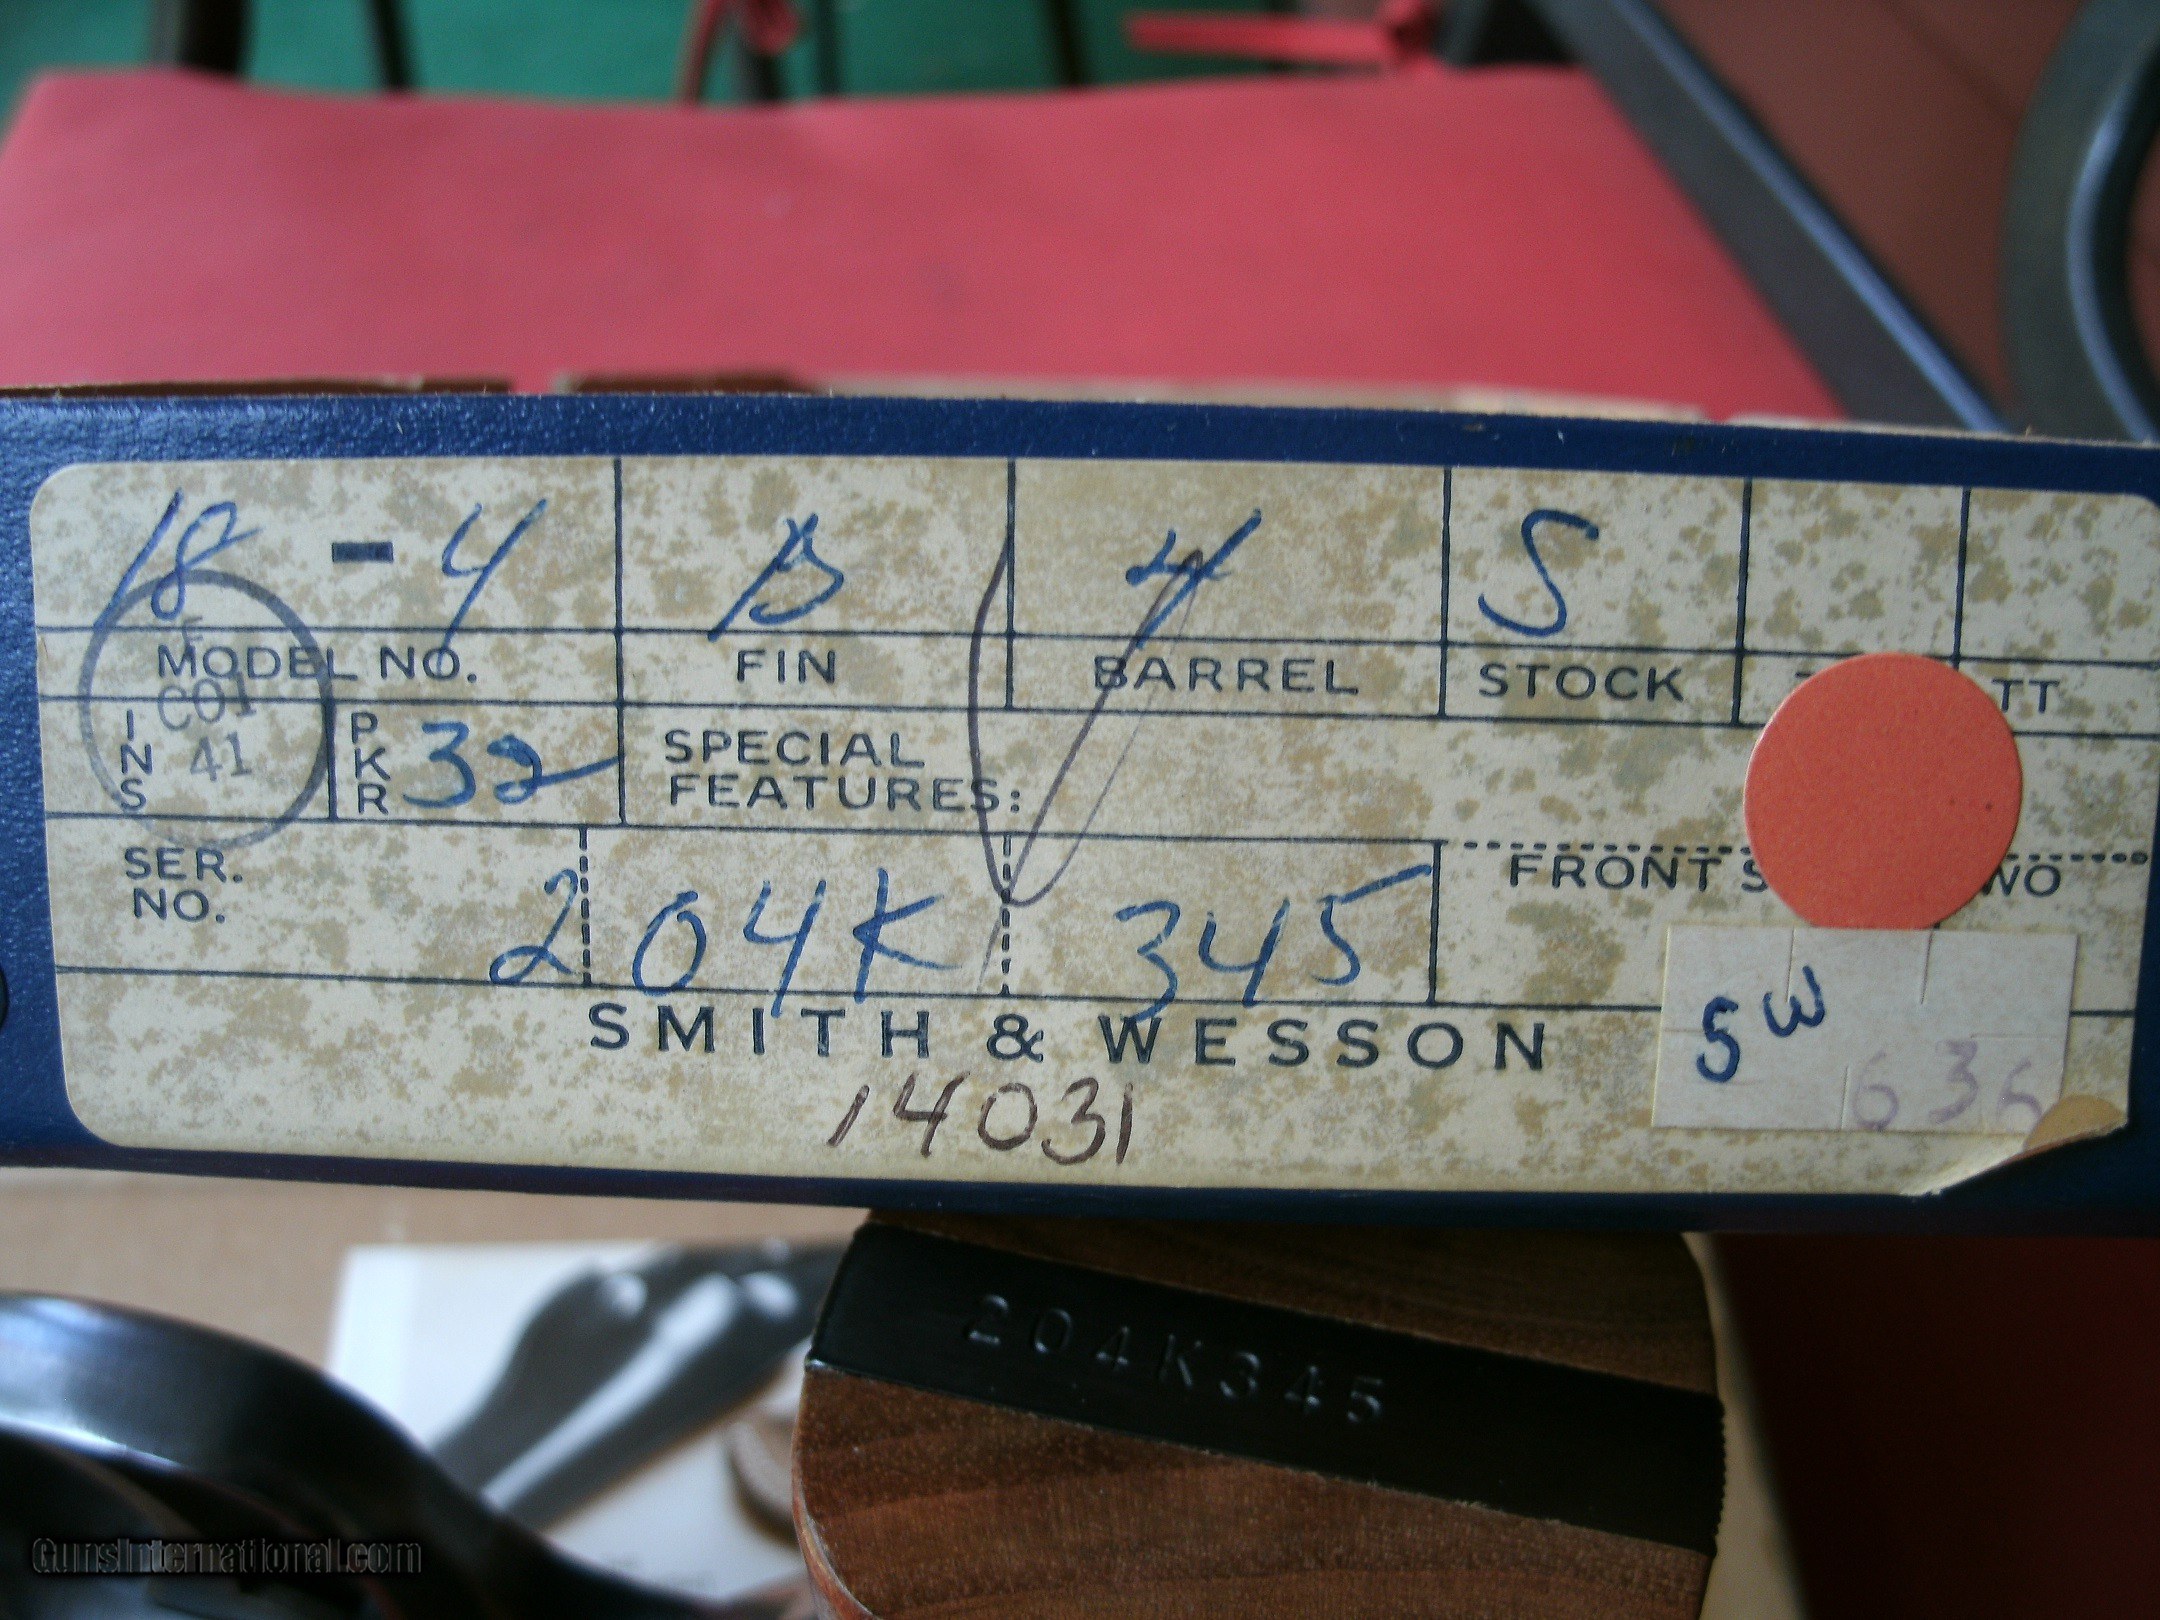 18 - 4 B 4 S
MODEL NO. FIN BARREL STOCK TT
F
C01
41
INS PKR 32 SPECIAL
FEATURES:
SER.
NO. 204K 345 FRONT S WO
SMITH & WESSON
14031
SW
636
204K345
GunsInternational.com